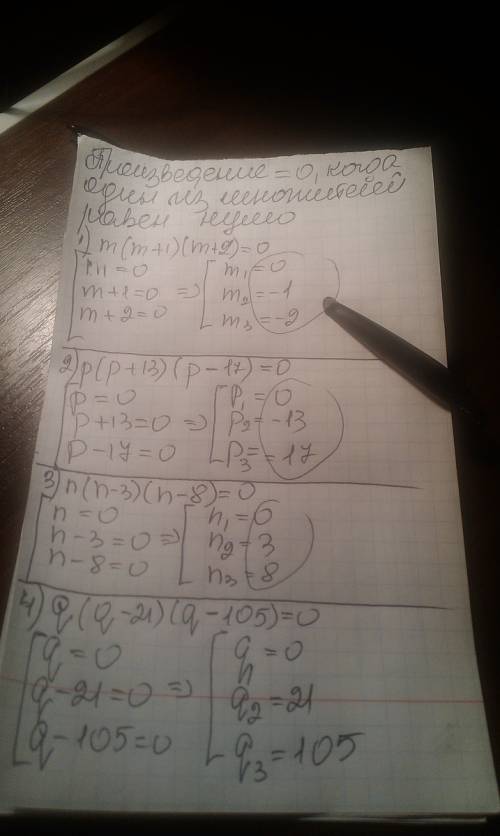 Произведение = 0, когда
один из множителей
равен нулю
1) m(m+1)(m+2)=0
m=0
m+1=0 => m₂=-1
m+2=0
m₁=0
m₃=-2
2) p(p+13)(p-17)=0
p=0
p+13=0 => p₂=-13
p-17=0
p₁=0
p₃=17
3) n(n-3)(n-8)=0
n=0
n-3=0 => n₂=3
n-8=0
n₁=0
n₃=8
4) q(q-21)(q-105)=0
q=0
q-21=0 => q₂=21
q-105=0
q₁=0
q₃=105